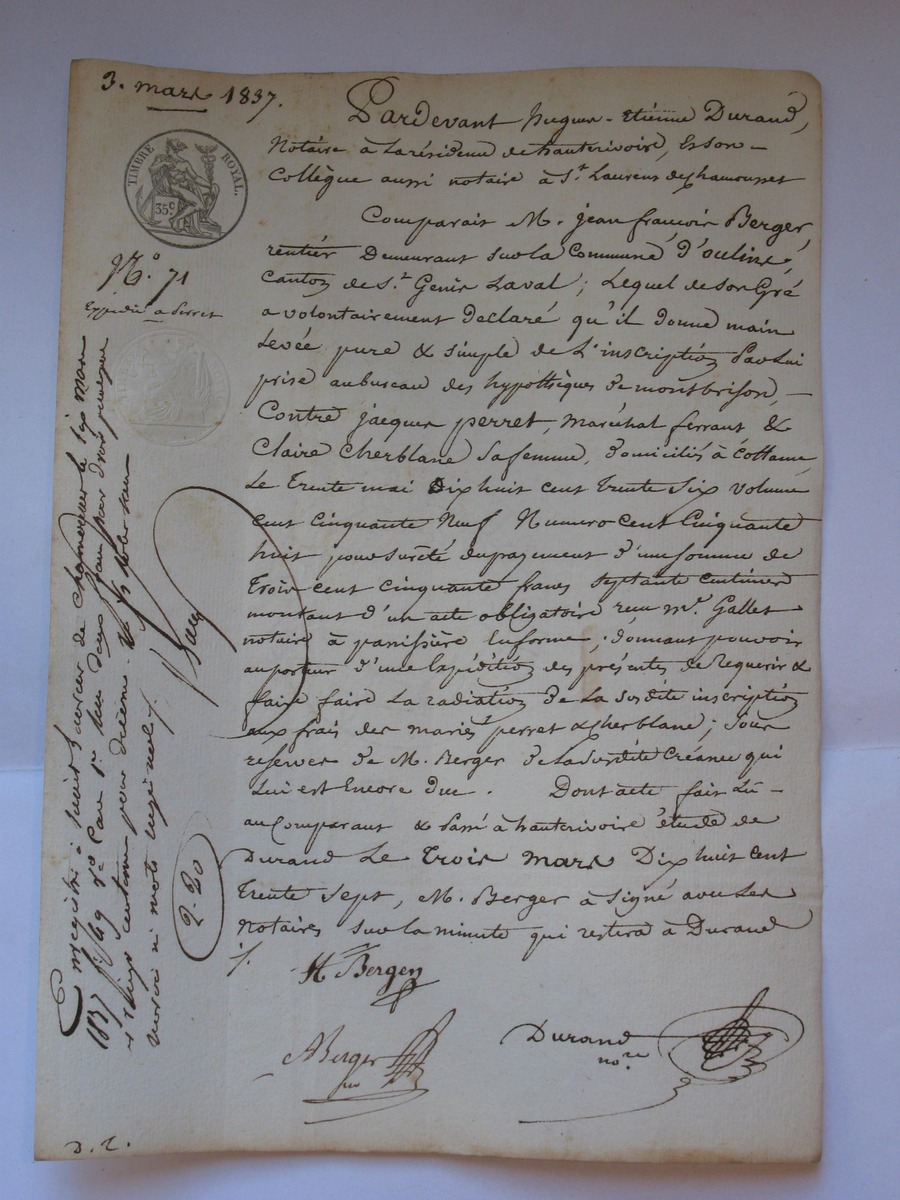 3. mars 1837.
TIMBRE ROYAL.
35c
N.o 71
Expédié à Perret
Pardevant Jacques-Etiénne Durand,
Notaire à La résidence de hauterivoire, Et son
Collègue aussi notaire à St. Laurens de chamousset
Comparait M. jean françois Berger,
rentier Demeurant sur la Commune d'oulins,
canton de St. Genis Laval; Lequel de son Gré
a volontairement déclaré qu'il donne main
Levée pure & simple de L'inscription Par Lui
prise au bureau des hypothèques de montbrison,
Contre jacques perret, maréchal ferrant &
Claire Cherblanc sa femme, domiciliés à Cottance,
Le Trente mai Dix huit cent trente six volume
cent cinquante Neuf Numero cent Cinquante
huit pour sureté du payement d'une somme de
Trois cent cinquante francs septante centimes
montant d'un acte obligatoire reçu me. Gallet
notaire à panissière En forme; donnant pouvoir
au porteur d'une Expédition des présentes de Requerir &
faire faire La radiation de La susdite inscription
aux frais des mariés perret & cherblanc; sous
reserves de M. Berger de La susdite Créance qui
Lui est Encore due. Dont acte fait Lu
au Comparant & Passé à hauterivoire étude de
Durand Le Trois mars Dix huit cent
Trente sept, M. Berger à signé avec Les
Notaires sur la minute qui restera à Durand
H Berger
Berger
Durand
nore
Enregistré à Saint Laurent de chamousset le six mars
1837 fo 49 Vo Case 1re reçu deux francs pour droit principal
et vingt centimes pour dixième
2-20
D. L.